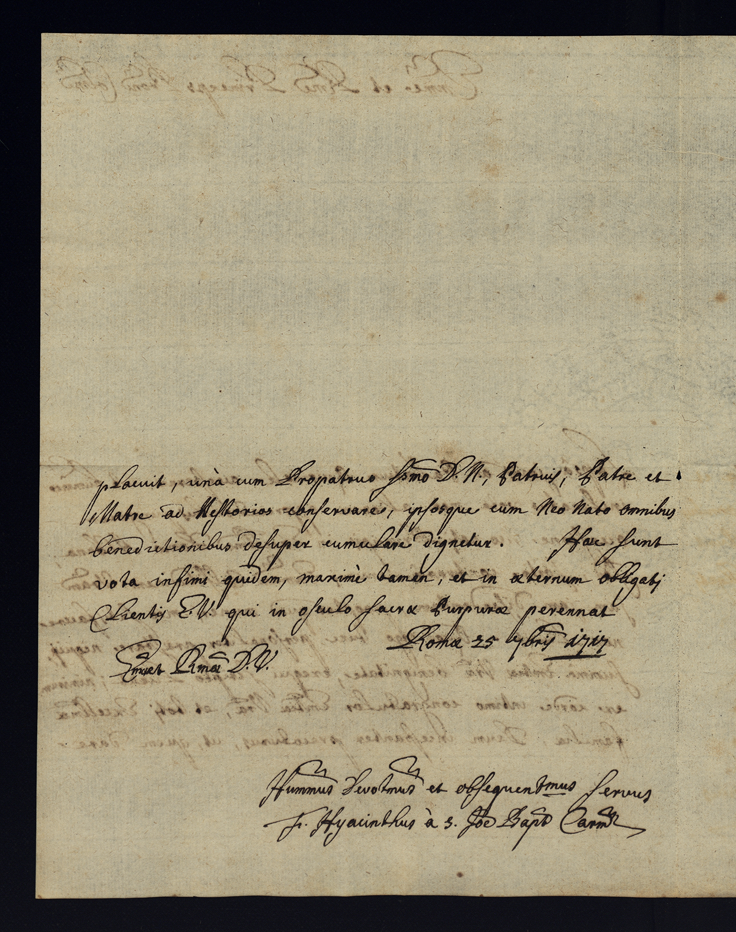 placuit, unà cum Propatruo Ssmo D. N., Patruis, Patre et
Matre ad Nestorios conservare, ipsosque cum Neo Nato omnibus
benedictionibus desuper cumulare dignetur. Hæc sunt
vota infimi quidem, maximè tamen, et in æternum obligatj
Clientis E. V. qui in osculo Sacræ Purpuræ perennat
Romæ 25 7bris 1717
Emæ et Rmæ D. V.
Hummus Devotmus et obsequentmus servus
F. Hyacinthus à S. Joe Bapt Carm